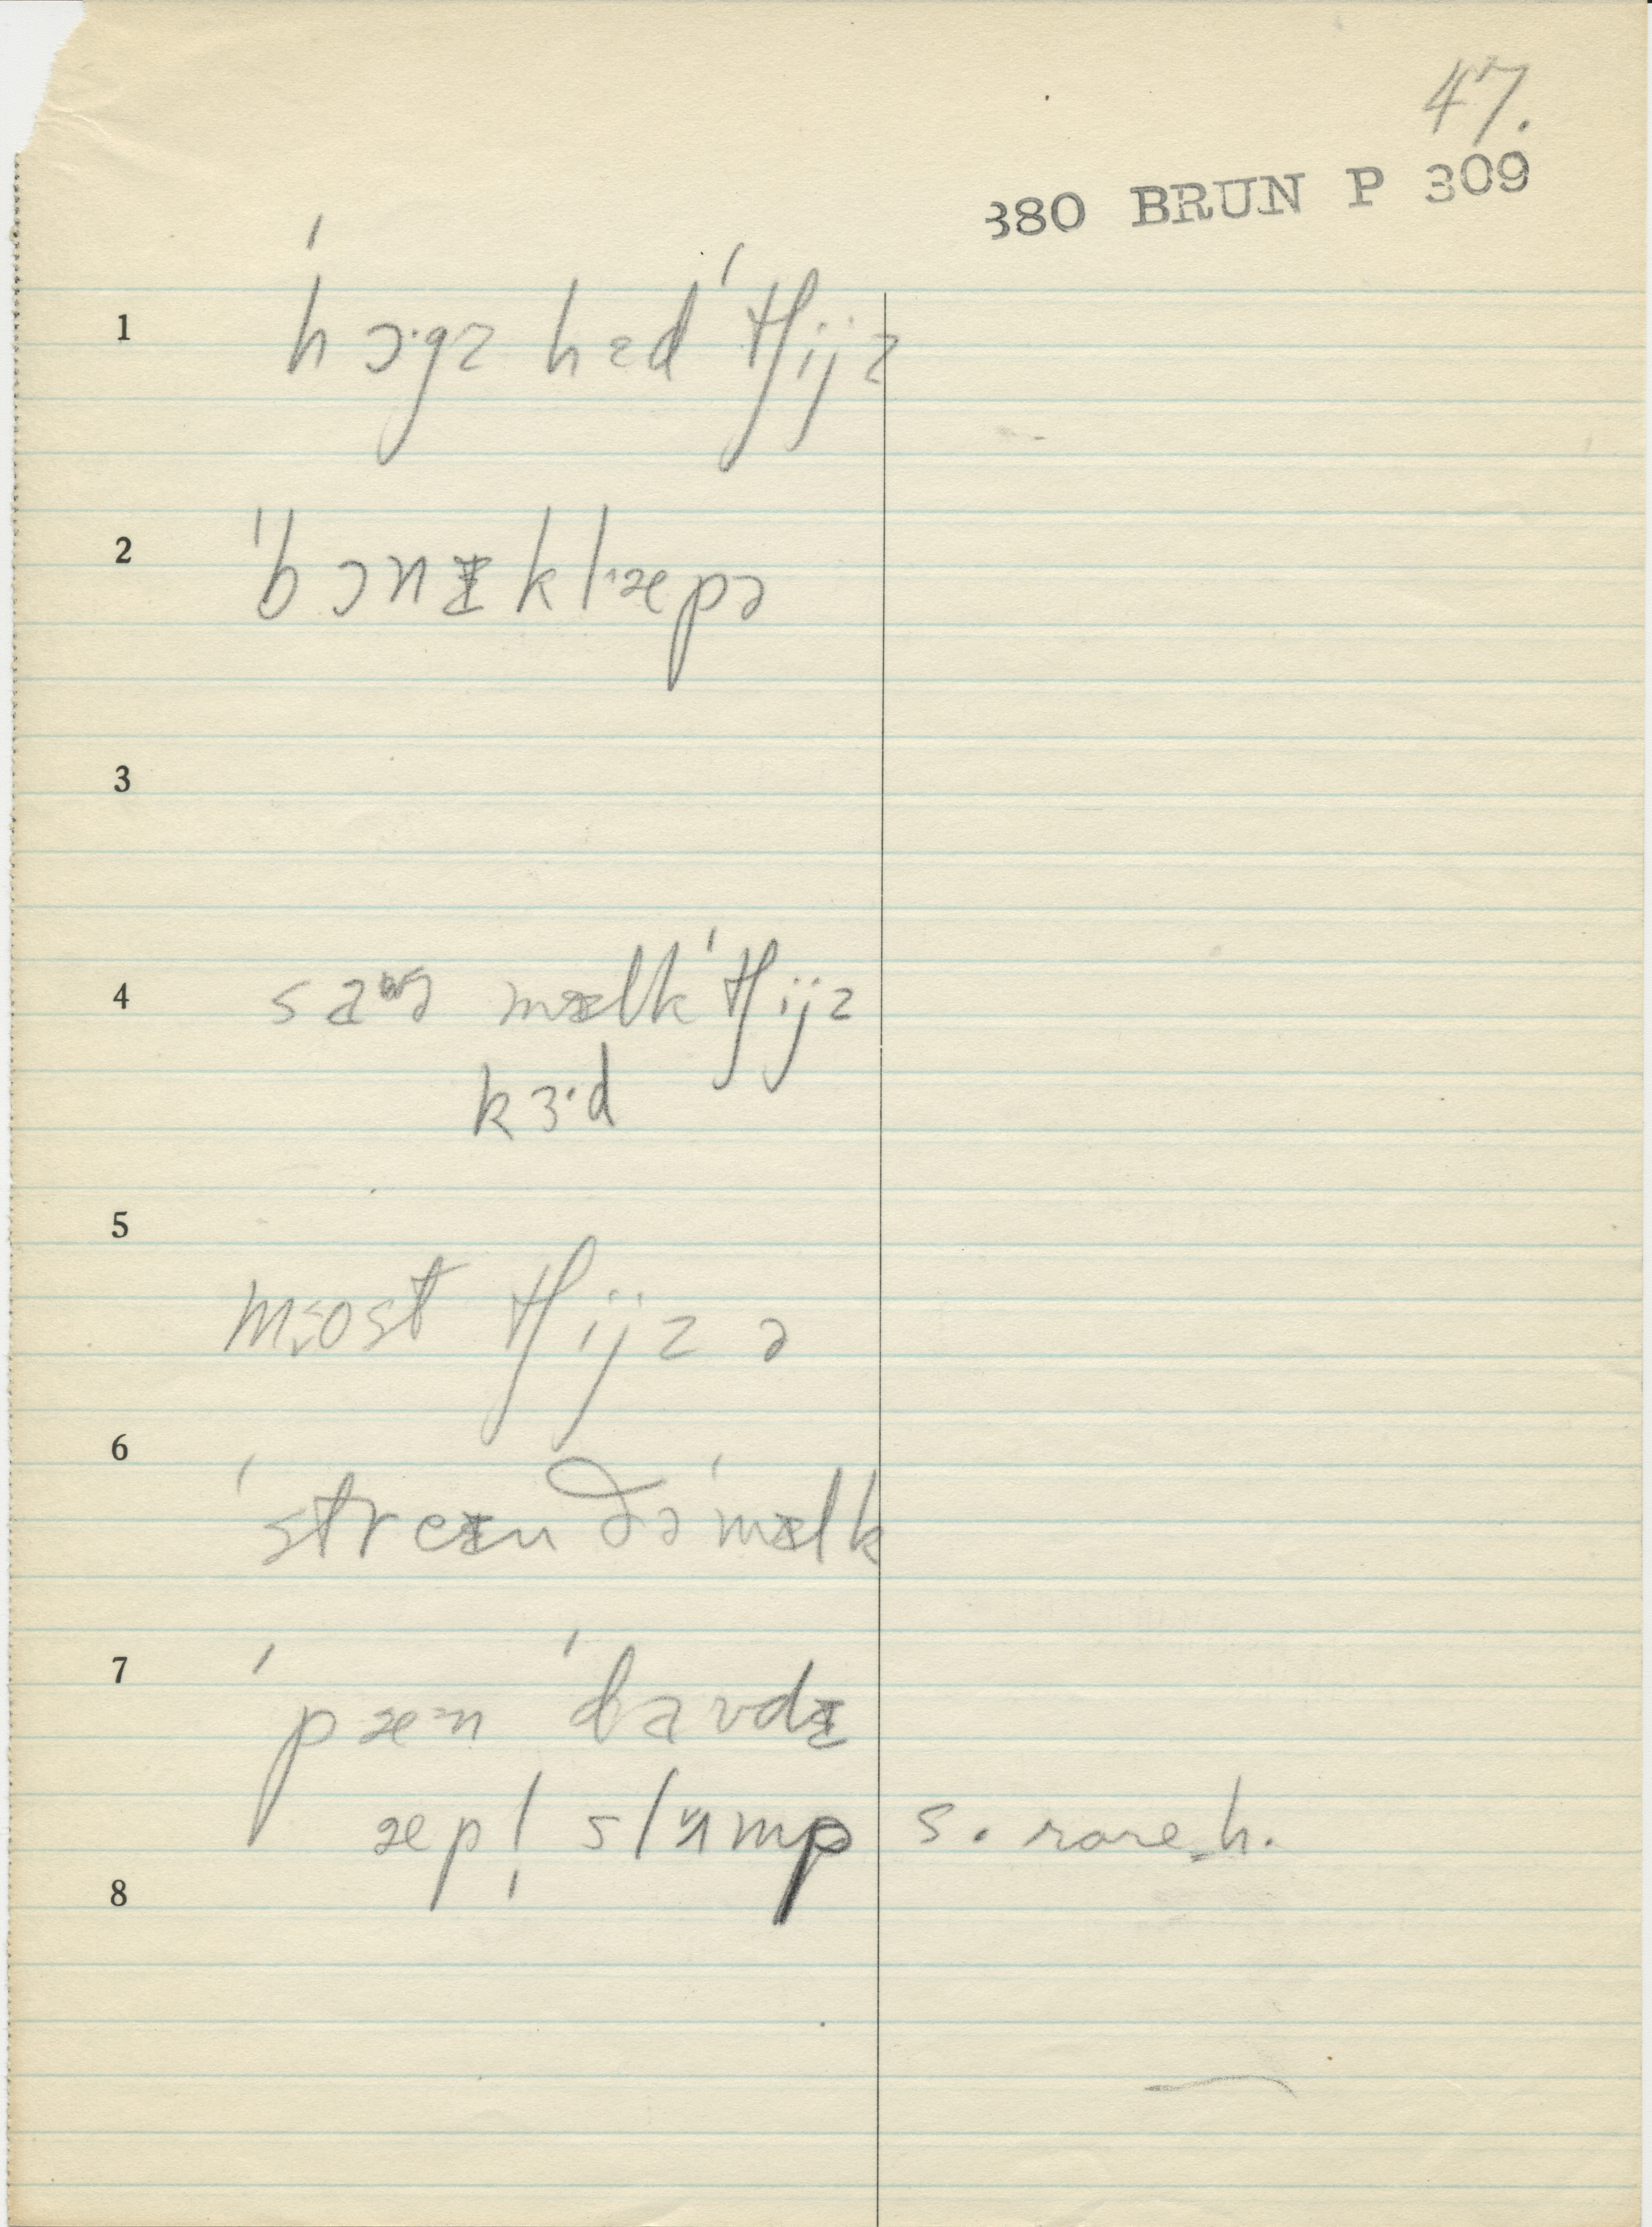 47.
380 BRUN P 309
1 ˈhɔ·gz hɛdˈtʃijz
2 ˈbɔnɪklæpə
3
4 mɪlkˈtʃijz
kɜ·d
5
most tʃijz ə
6
ˈstreɪn ðəˈmɪlk
7 ˈpæn ˈdavdɪ
æpl̩ slʌmp s. rare h.
8